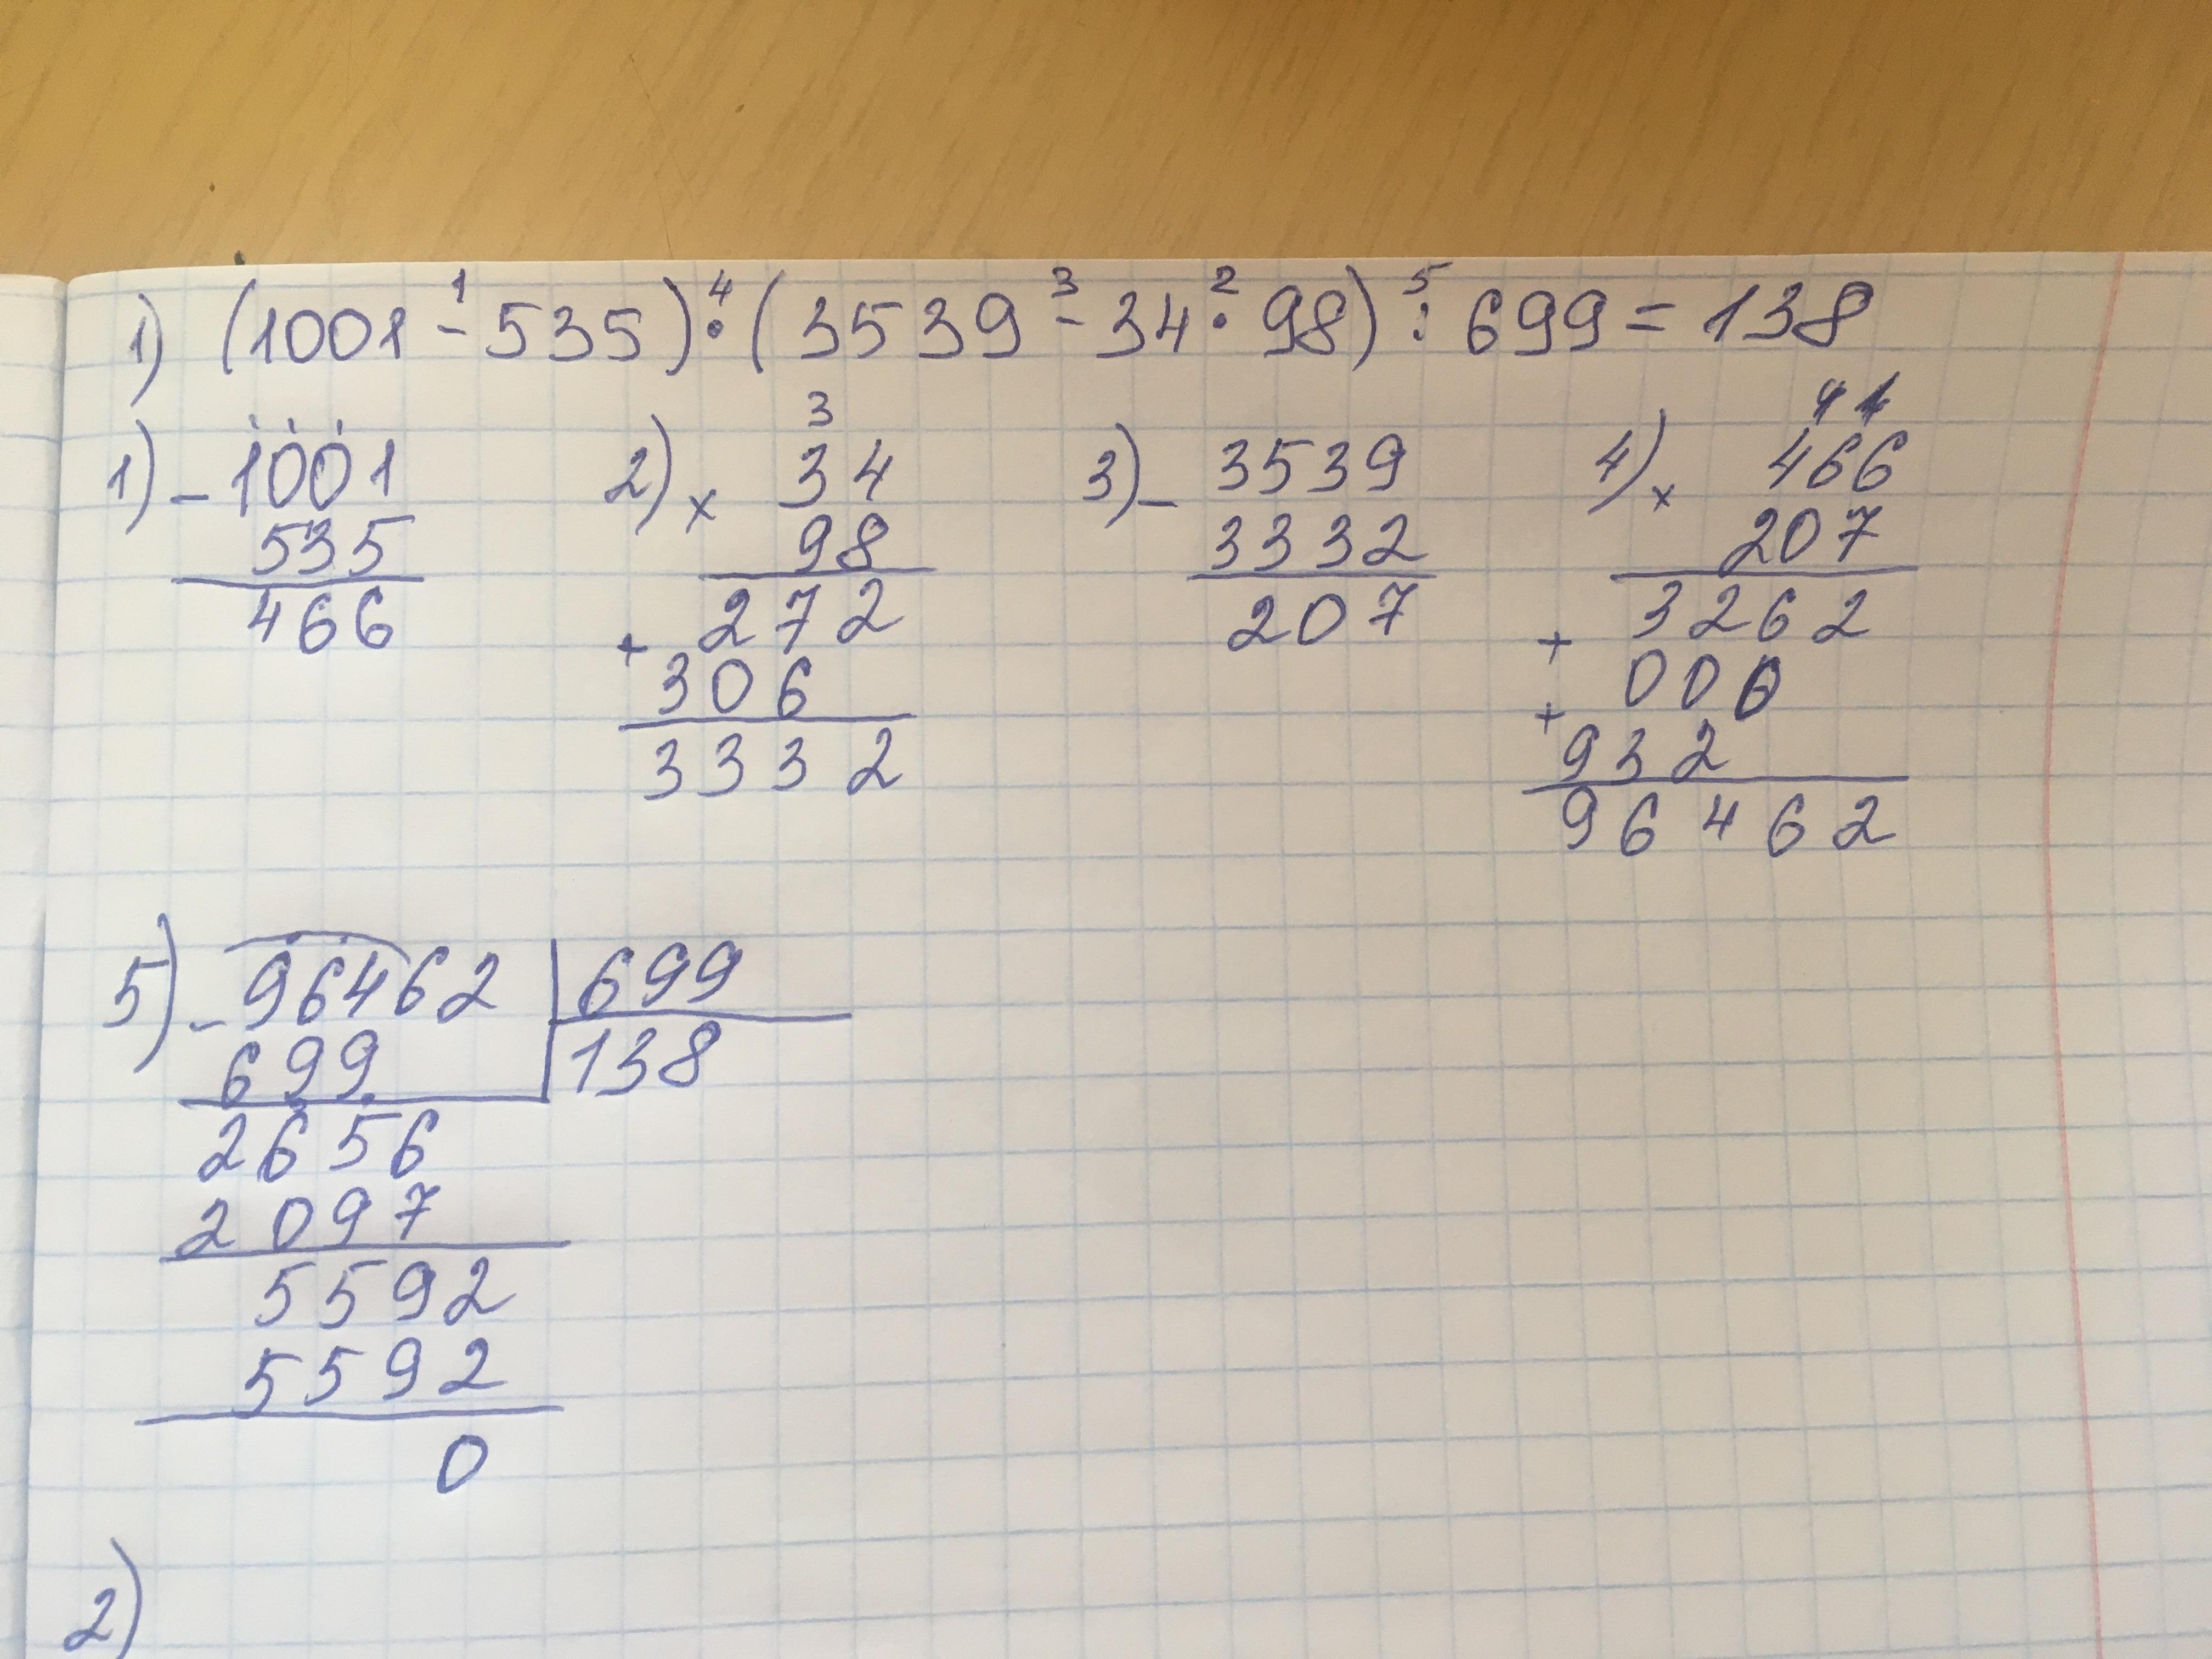 1) (1001 - 535) · (3539 - 34 · 98) : 699 = 138
1 4 3 2 5
1) - 1001
535
466
2) × 34
3
98
272
+ 306
3332
3) - 3539
3332
207
4) × 466
44
207
3262
+ 000
+ 932
96462
5) - 96462 | 699
699 | 138
2656
2097
5592
5592
0
2)